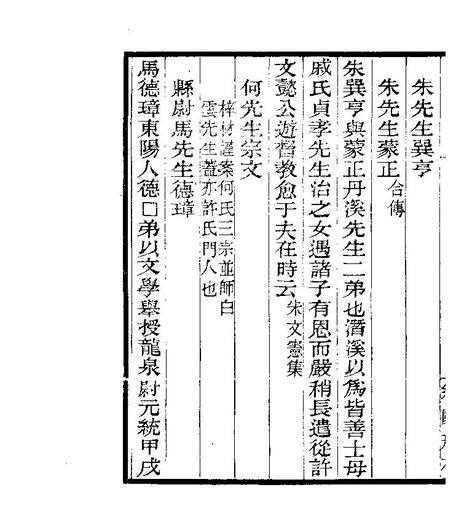 朱先生巽亨
朱先生蒙正合傳
朱巽亨與蒙正丹溪先生二弟也潛溪以為皆善士母
戚氏貞孝先生治之女遇諸子有恩而嚴稍長遣從許
文懿公遊督教愈于夫在時云朱文憲集
何先生宗文
梓材謹案何氏三宗並師白
雲先生蓋亦許氏門人也
縣尉馬先生德璋
馬德璋東陽人德□弟以文學舉授龍泉尉元統甲戌